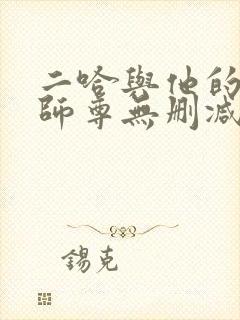 二哈與他的
師尊無刪減
錫克